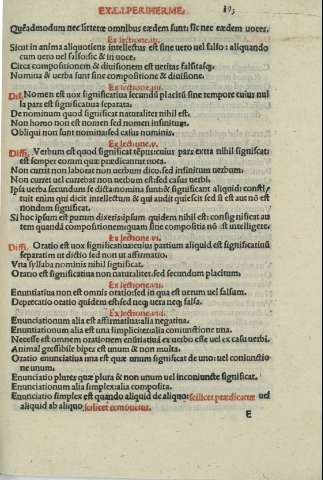 EX.L.I.PERIHERME.
Quēadmodum nec litteræ omnibus eædem sunt: sic nec eædem uoces.
Ex lectione.iii.
Sicut in anima aliquotiens intellectus est sine uero uel falso: aliquando
cum uero uel falso: sic & in uoce.
Circa compositionem & diuisionem est ueritas falsitasq;
Nomina & uerba sunt sine compositione & diuisione.
Ex lectione.iiii.
Dif. Nomen est uox significatiua secundū placitū sine tempore cuius nul
la pars est significatiua separata.
De nominum quod significat naturaliter nihil est.
Non homo non est nomen sed nomen infinitum.
Obliqui non sunt nomina sed casus nominis.
Ex lectione.v.
Diffi. Verbum est quod significat tēpus: cuius pars extra nihil significat:
est semper eorum quæ prædicantur nota.
Non currit non laborat non uerbum dico. sed infinitum uerbum.
Non curret uel currebat non uerbum est: sed casus uerbi.
Ipsa uerba secundum se dicta nomina sunt: & significant aliquid: consti/
tuit enim qui dicit intellectum & qui audit quiescit sed si est aut nō est
nondum significant.
Si hoc ipsum est purum dixeris: ipsum quidem nihil est: consignificat au
tem quandā compositionem: quam sine compositis nō est intelligere.
Ex lectione.vi.
Diffi. Oratio est uox significatiua: cuius partium aliquid est significatiuū
separatim ut dictio sed non ut affirmatio.
Vna syllaba nominis nihil significat.
Oratio est significatiua non naturaliter: sed secundum placitum.
Ex lectione.vii.
Enuntiatiua non est omnis oratio: sed in qua est uerum uel falsum.
Deprecatio oratio quidem est: sed neq; uera neq; falsa.
Ex lectione.viii.
Enunciationum alia est affirmatiua: alia negatiua.
Enuntiationum alia est una simpliciter: alia coniunctione una.
Necesse est omnem orationem enūtiatiuā ex uerbo esse uel ex casu uerbi.
Animal gressibile bipes est unum & non multa.
Oratio enunciatiua una est quæ unum significat de uno: uel coniunctio
ne unum.
Enunciatio plures quæ plura & non unum uel inconiuncte significat.
Enunciationum alia simplex: alia composita.
Enunciatio simplex est quando aliquid de aliquo: scilicet prædicatur uel
aliquid ab aliquo scilicet remouetur.
E